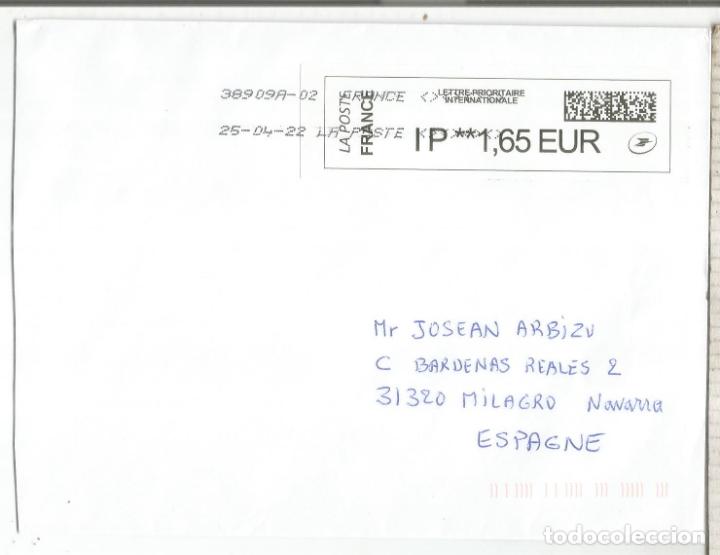 38909A-02 FRANCE <>
25-04-22 LA POSTE
LA POSTE
FRANCE
LETTRE PRIORITAIRE
INTERNATIONALE
IP **1,65 EUR
Mr JOSEAN ARBIZU
C BARDENAS REALES 2
31320 MILAGRO Navarra
ESPAGNE
todocoleccion